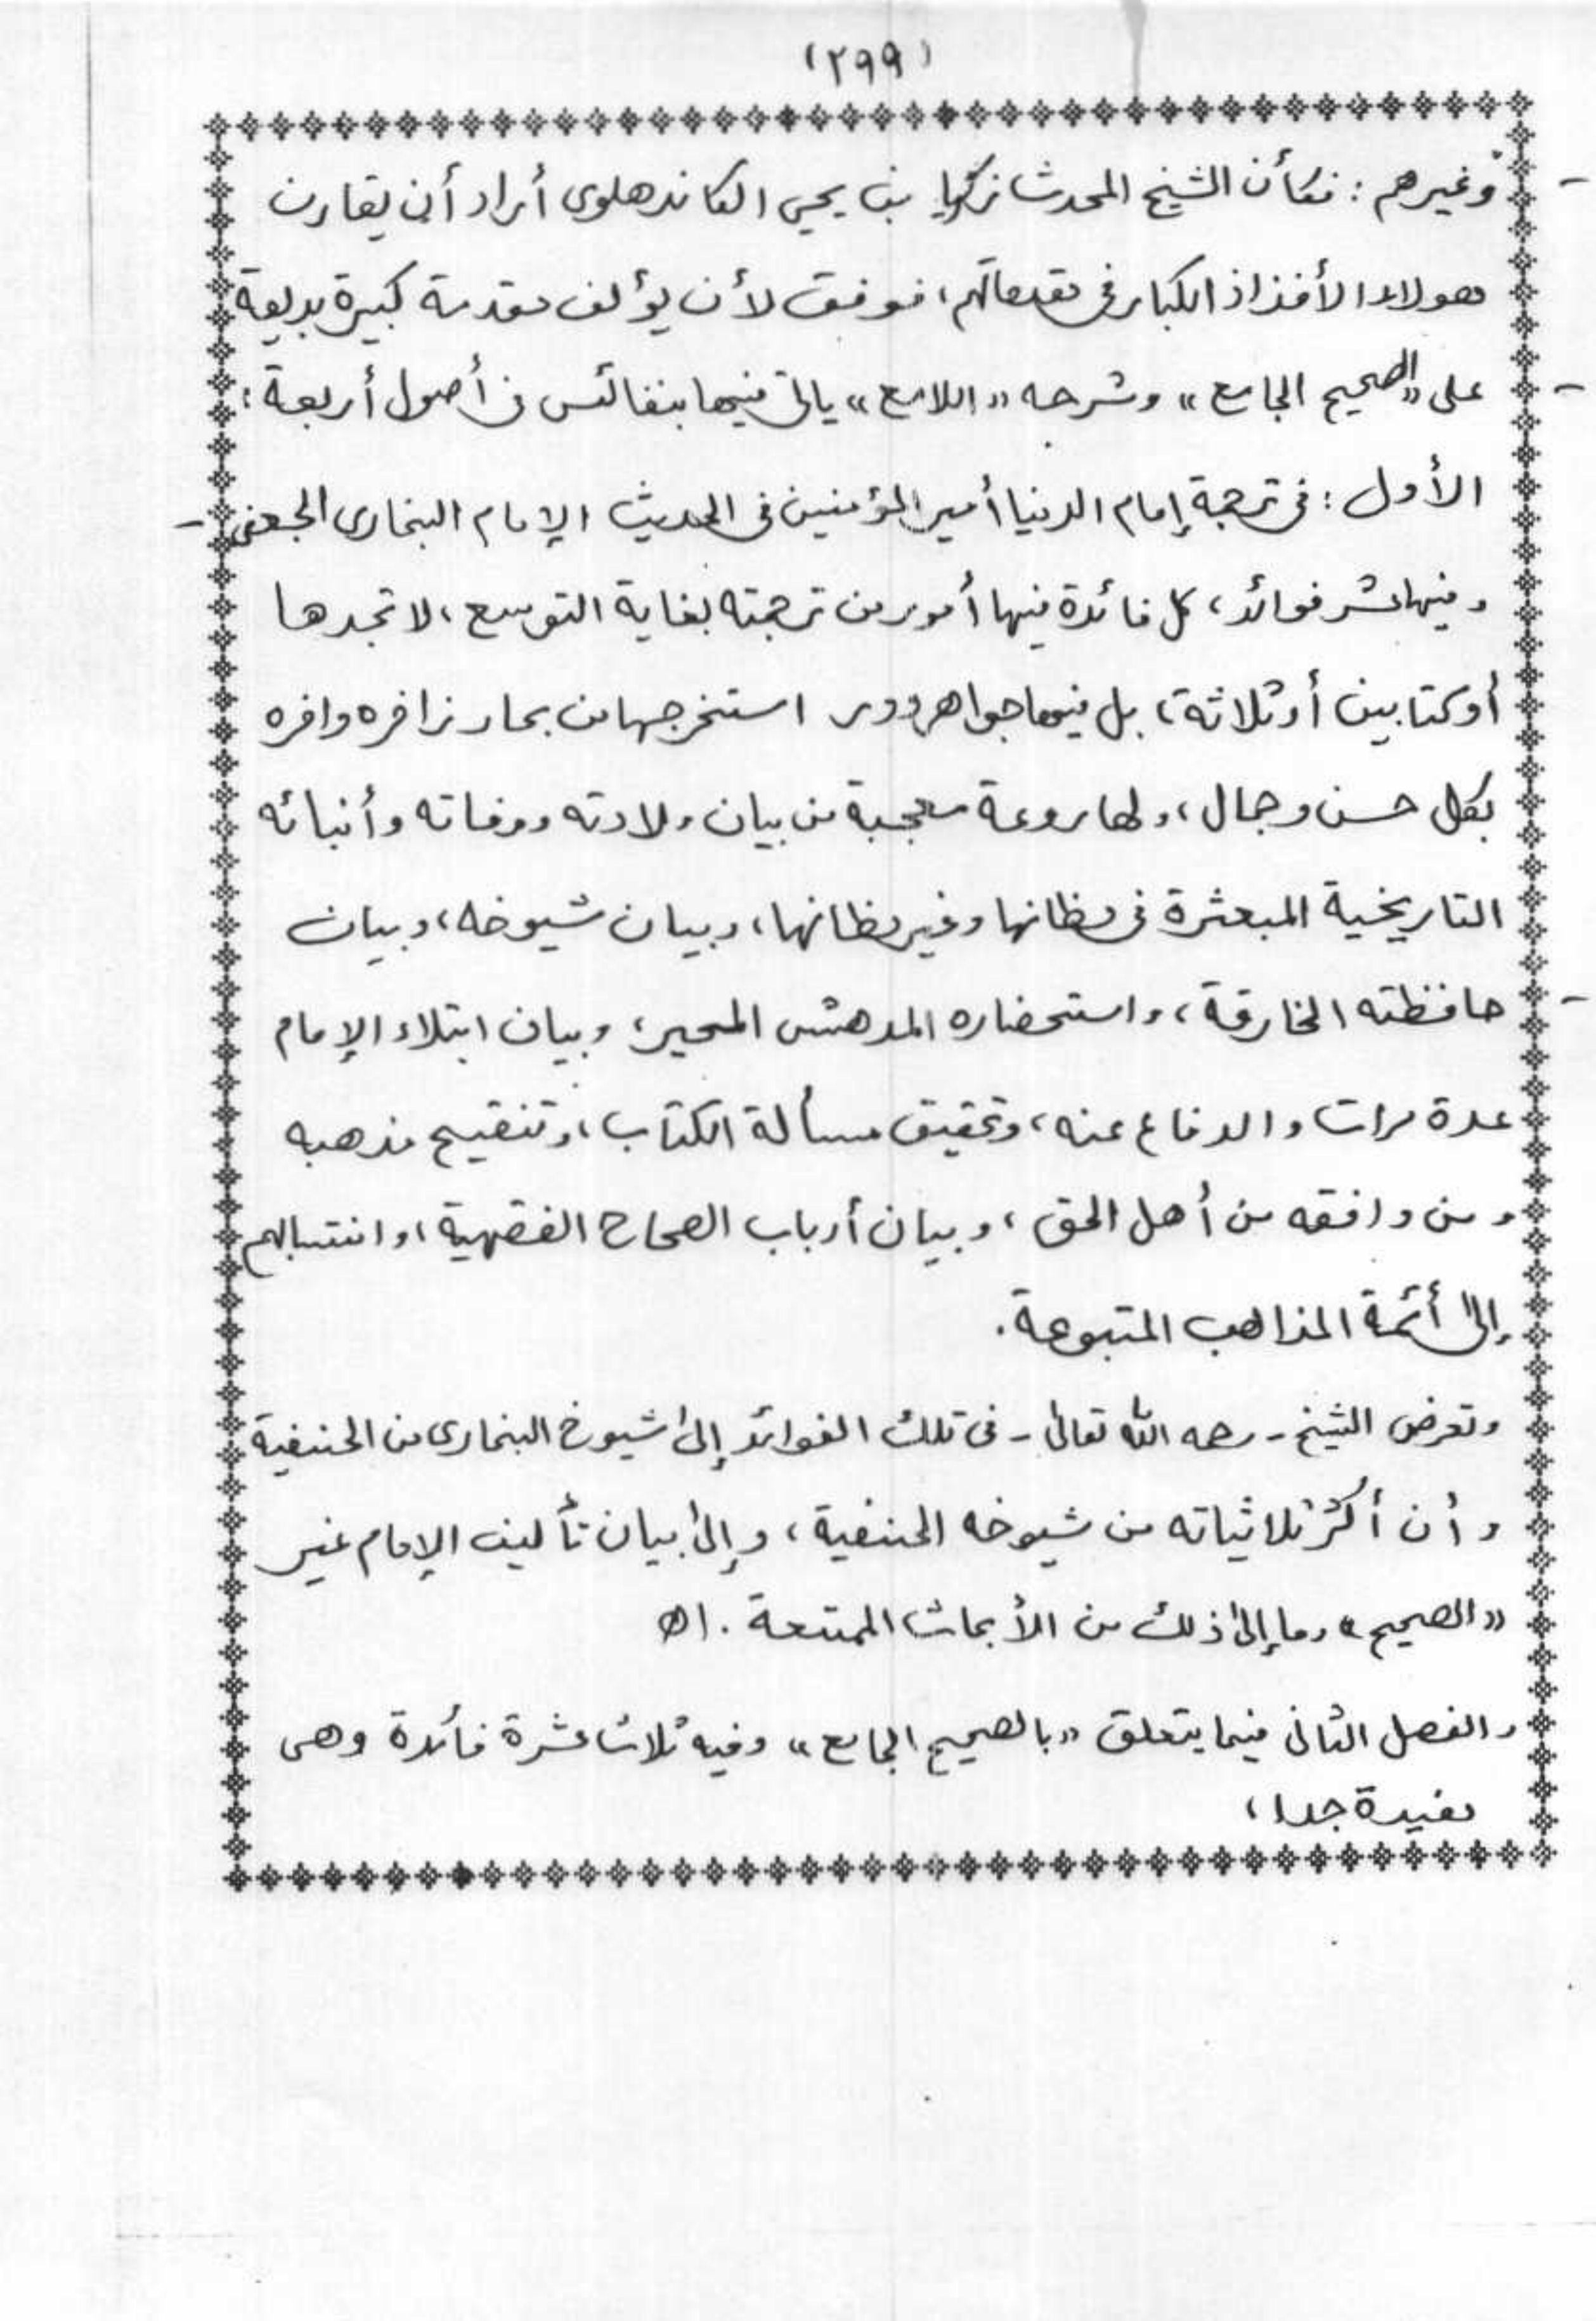 (٢٩٩)
وغيرهم : فكأن الشيخ المحدث زكريا بن يحيى الكاندهلوى أراد أن يقارن
هولاء الأفذاذ الكبار فى مقدماتهم، فوفق لأن يؤلف مقدمة كبيرة بديعة
على «الصحيح الجامع» وشرحه «اللامع» يأتى فيها بنفائس فى أصول أربعة :
الأول : فى ترجمة إمام الدنيا أمير المؤمنين فى الحديث الإمام البخارى الجعفى -
وفيها عشر فوائد، كل فائدة فيها أمور من ترجمته بغاية التوسع، لا تجدها
أو كتابين أو ثلاثة، بل فيها جواهر ودرر استخرجها من بحار زاخره وافره
بكل حسن وجمال، ولها روعة معجبة من بيان ولادته ووفاته وأنبائه
التاريخية المبعثرة فى مظانها وغير مظانها، وبيان شيوخه، وبيان
حافظته الخارقة، واستحضاره المدهش المحير، وبيان ابتلاء الإمام
عدة مرات والدفاع عنه، وتحقيق مسألة الكتاب، وتنقيح مذهبه
ومن وافقه من أهل الحق، وبيان أرباب الصحاح الفقهية، وانتسابهم
إلى أئمة المذاهب المتبوعة.
وتعرض الشيخ - رحمه الله تعالى - فى تلك الفوائد إلى شيوخ البخارى من الحنيفية
وأن أكثر ثلاثياته من شيوخه الحنفية، وإلى بيان تأليف الإمام غير
«الصحيح» وما إلى ذلك من الأبحاث الممتعة . اهـ
والفصل الثانى فيما يتعلق «بالصحيح الجامع» وفيه ثلاث عشرة فائدة وهى
مفيدة جدا،